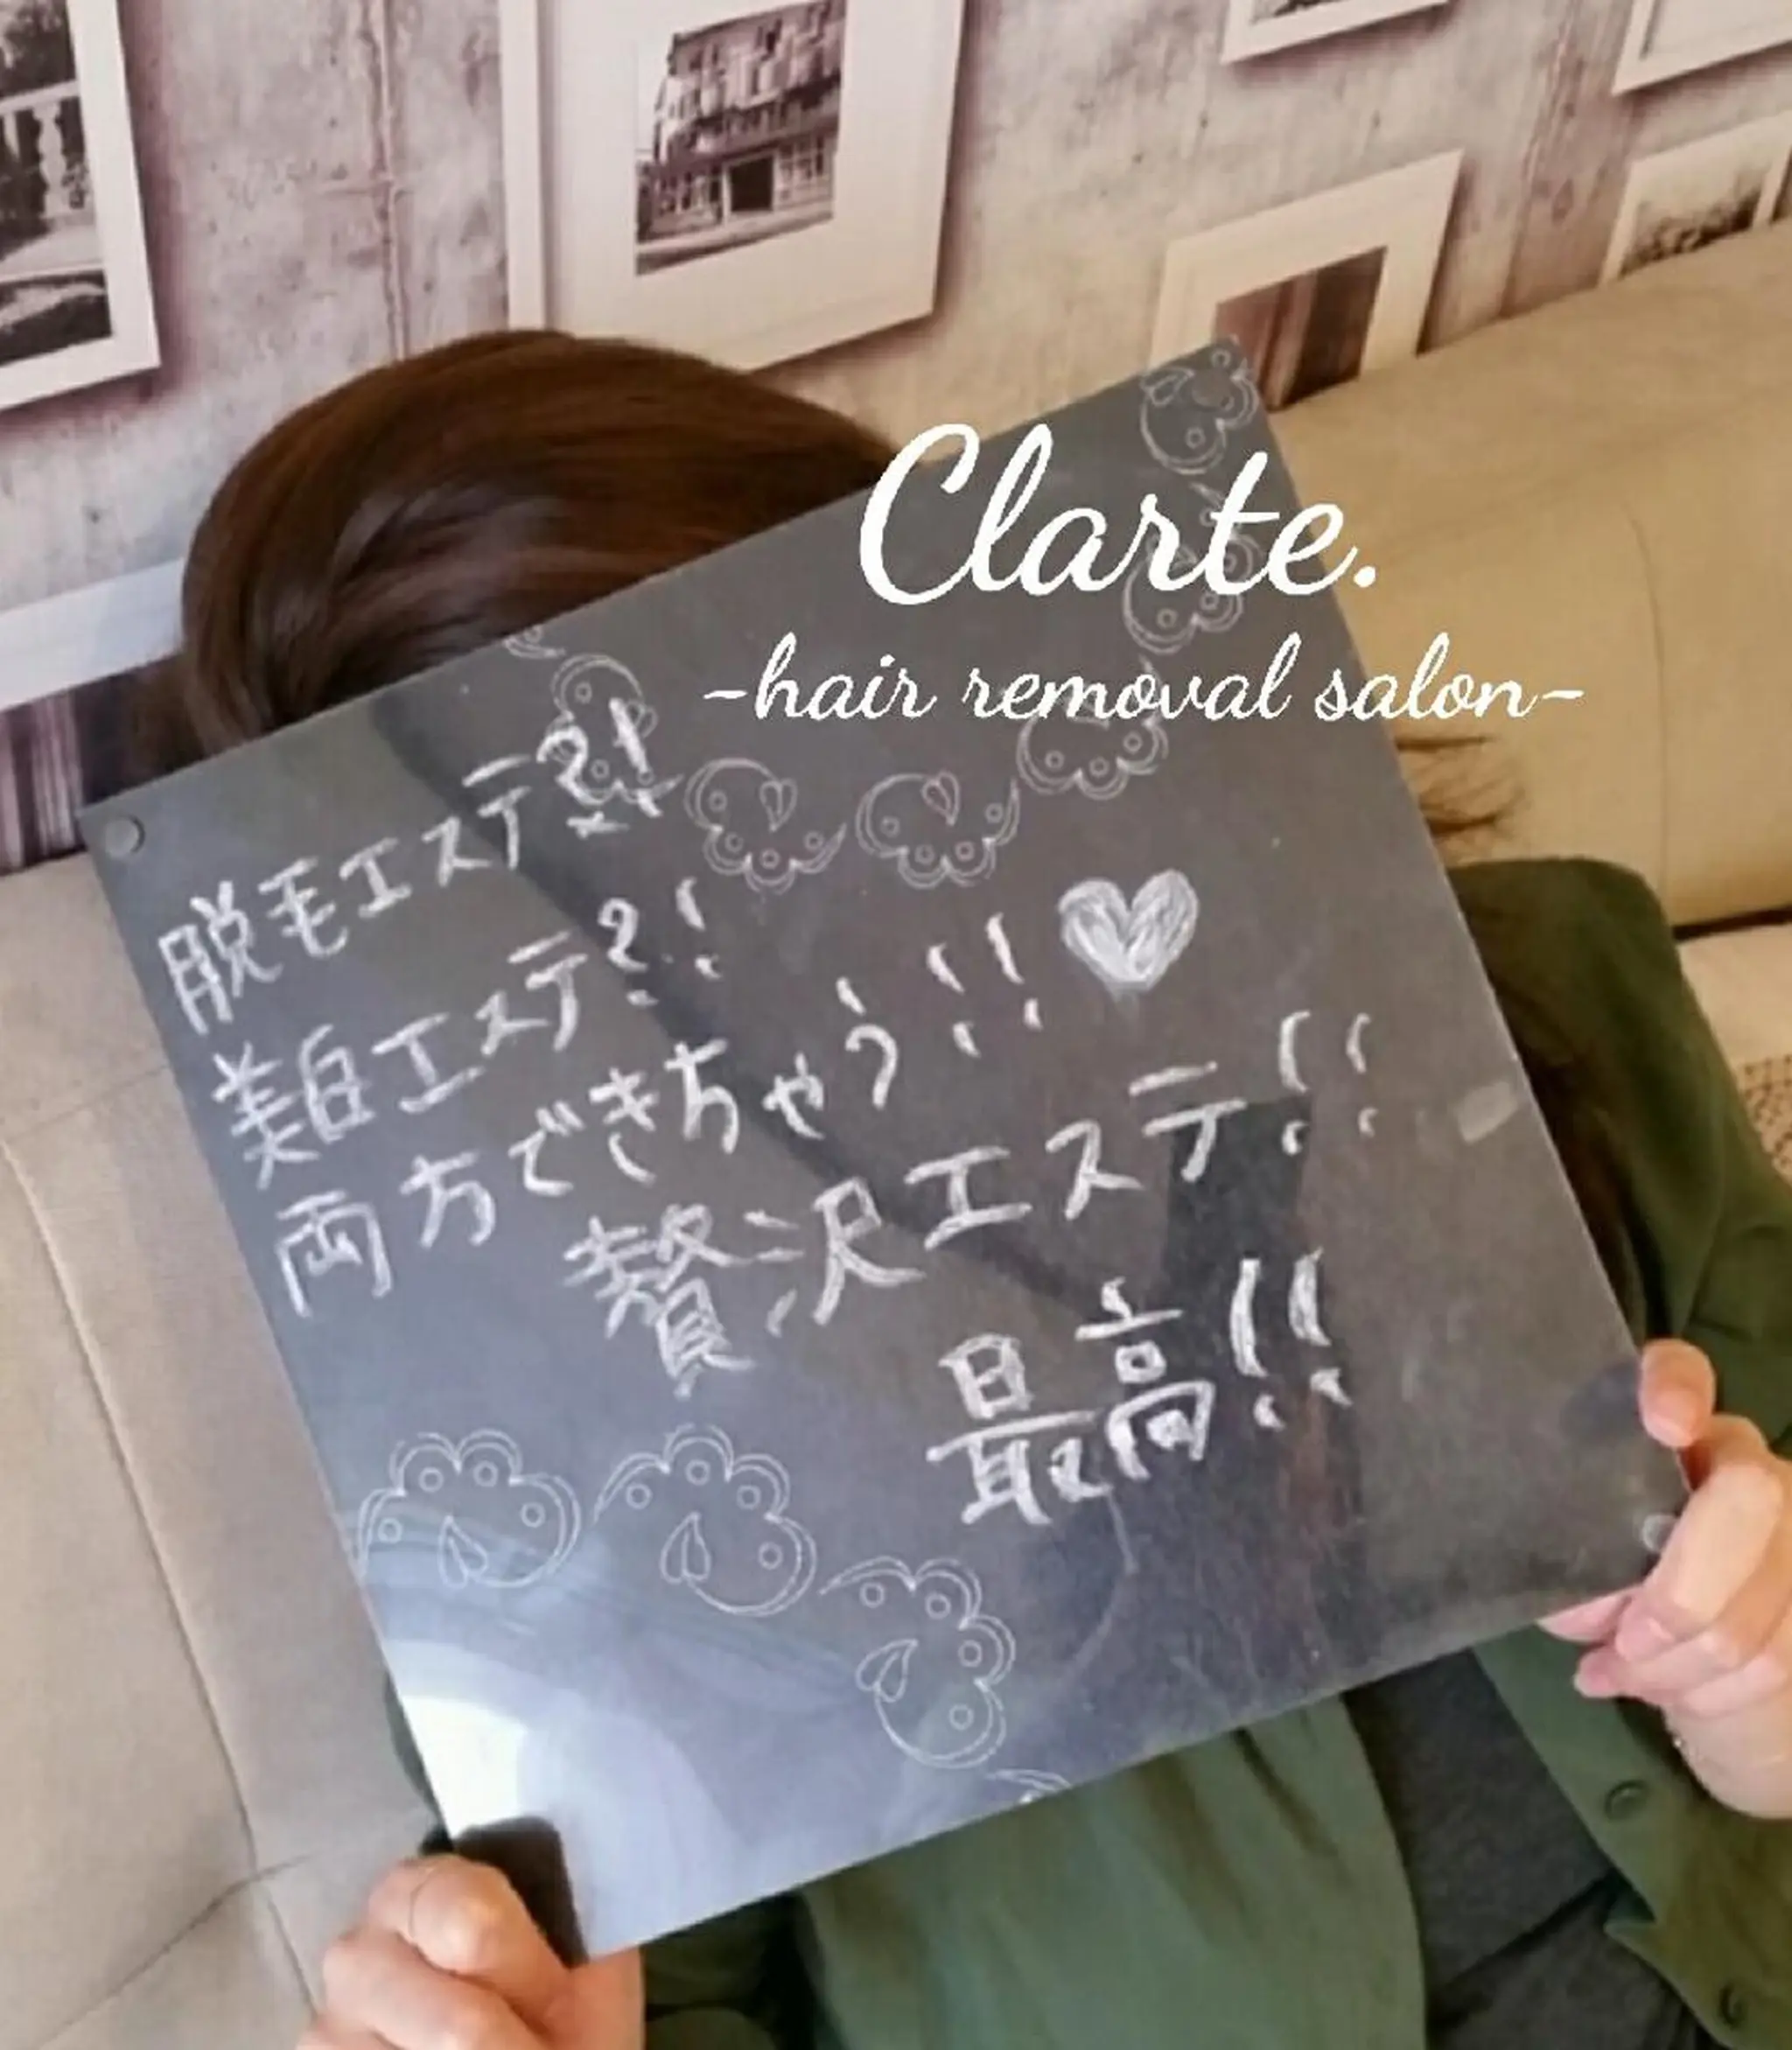 Clarte.
-hair removal salon-
脱毛エステ?!
美白エステ?!
両方できちゃう!!♥
贅沢エステ!!
最高!!